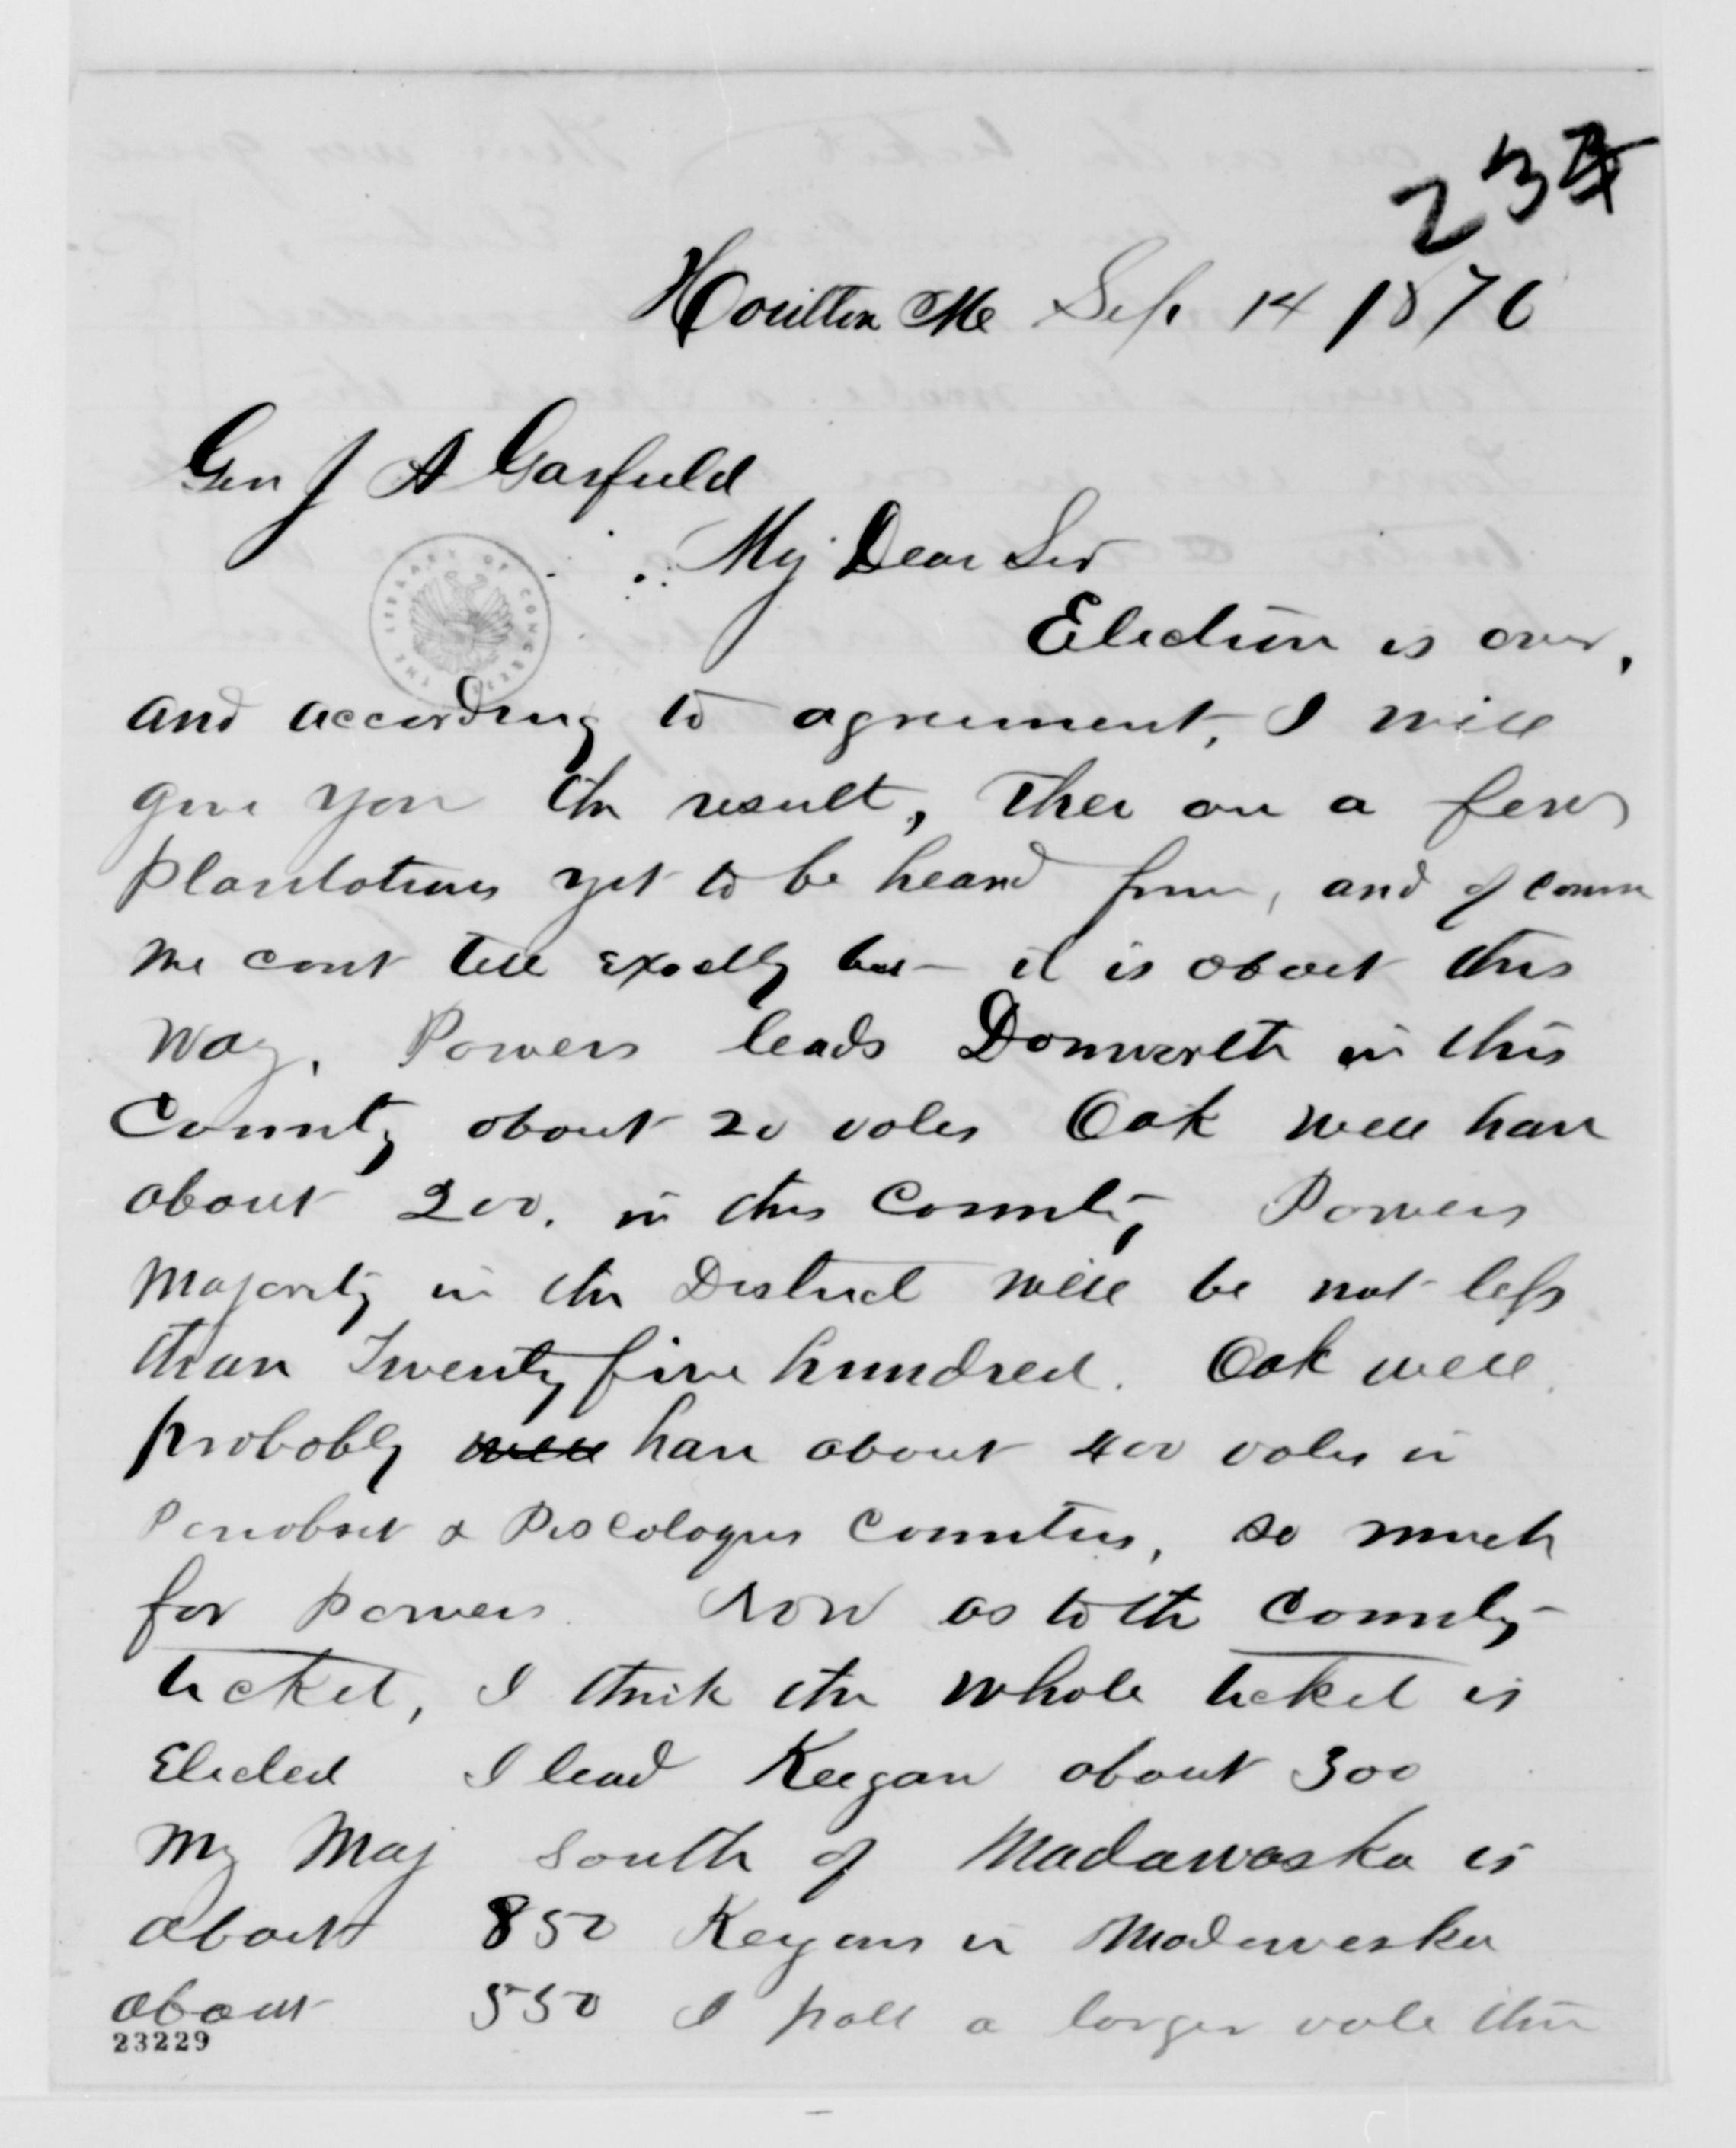 234
Houlton Me Sep. 14 1876
Gen J A Garfield
My Dear Sir
THE LIBRARY OF CONGRESS
Election is over,
and according to agreement, I will
give you the result, Ther are a few
plantations yet to be heard from, and of course
we cant tell exactly but it is about this
way. Powers leads Donworth in this
County about 20 votes Oak will have
about 200. in this County Powers
Majority in the District will be not less
than Twenty five hundred. Oak will
probably will have about 400 votes in
Penobscot & Piscataquis Counties, so much
for Powers Now as to the County
ticket, I think the whole ticket is
Elected I lead Keegan about 300
My Maj South of Madawaska is
about 850 Keegans in Madawaska
about 550 I poll a larger vote than
23229